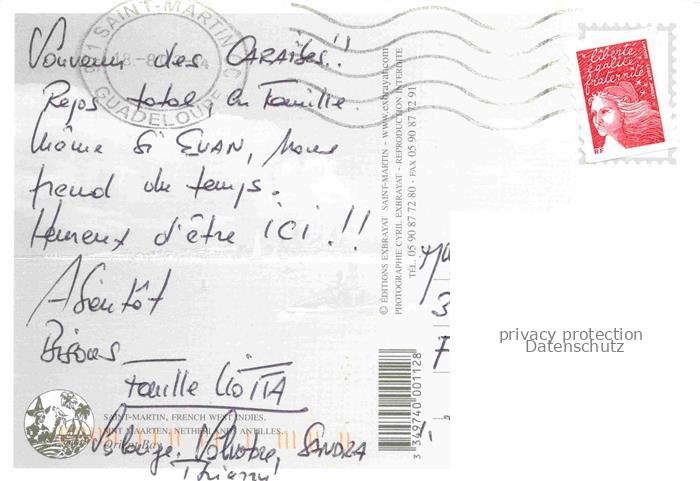 971 SAINT-MARTIN C
GUADELOUPE
Souvenir des CARAÏBES!!
Repos total, en Famille.
Même Si EVAN, Nous
prend du temps.
Heureux d'être ICI!!
A Bientôt
Bisous
Famille
SAINT-MARTIN, FRENCH WEST INDIES.
SINT MAARTEN, NETHERLANDS ANTILLES.
Orient Bay
Solange, SANDRA
Thierry
© ÉDITIONS EXBRAYAT SAINT-MARTIN - www.exbrayat.com
PHOTOGRAPHIE CYRIL EXBRAYAT - REPRODUCTION INTERDITE
TÉL. 05 90 87 72 80 - FAX 05 90 87 72 91
3 349740 001128
liberté
égalité
fraternité
RF
privacy protection
Datenschutz